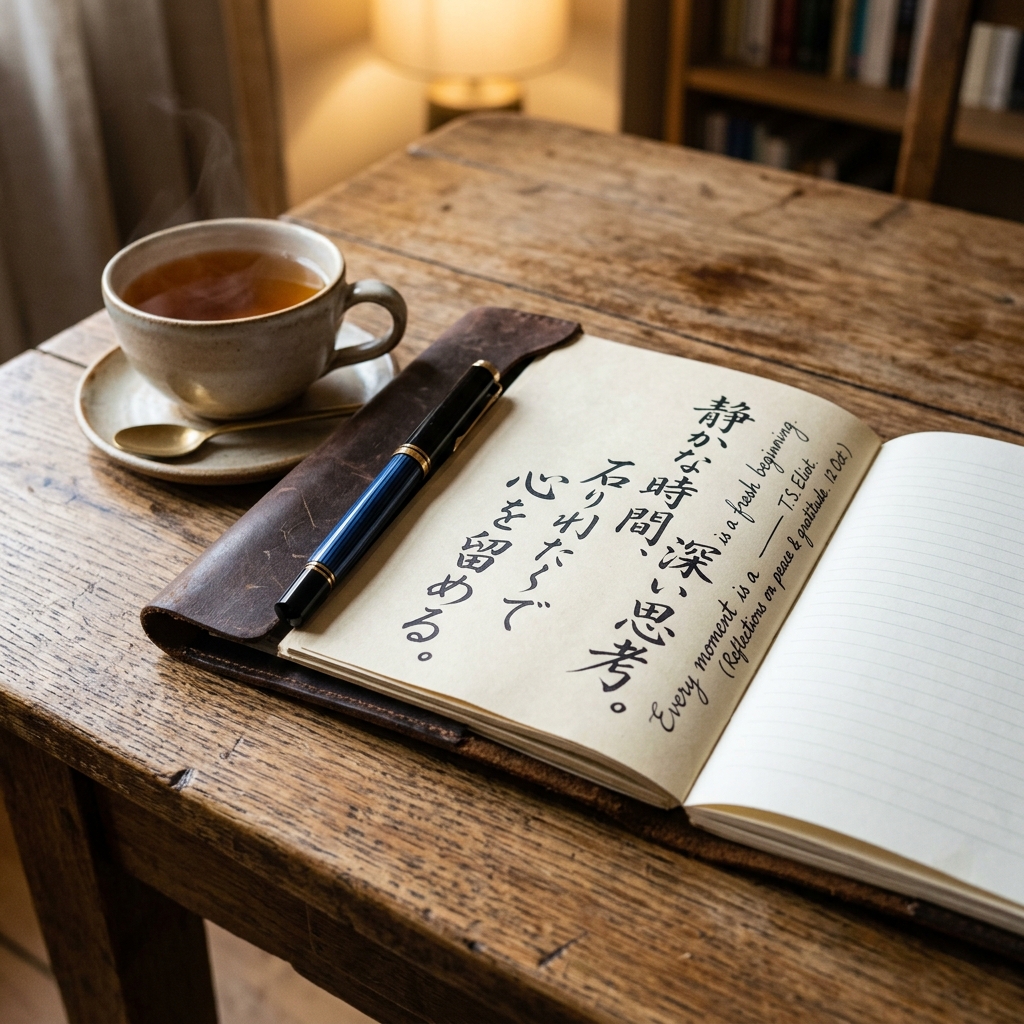 静かな時間、
深い思考。
心を留める。
is a fresh beginning
Every moment is a
— T.S. Eliot.
(Reflections on peace & gratitude. 12 Oct)